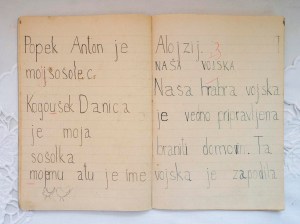 Popek Anton je
moj sošolec.
Kogovšek Danica
je moja
sošolka
mojemu atu je ime
Alojzij.
NAŠA VOJSKA
Naša hrabra vojska
je vedno pripravljena
braniti domovino. Ta
vojska je zapodila